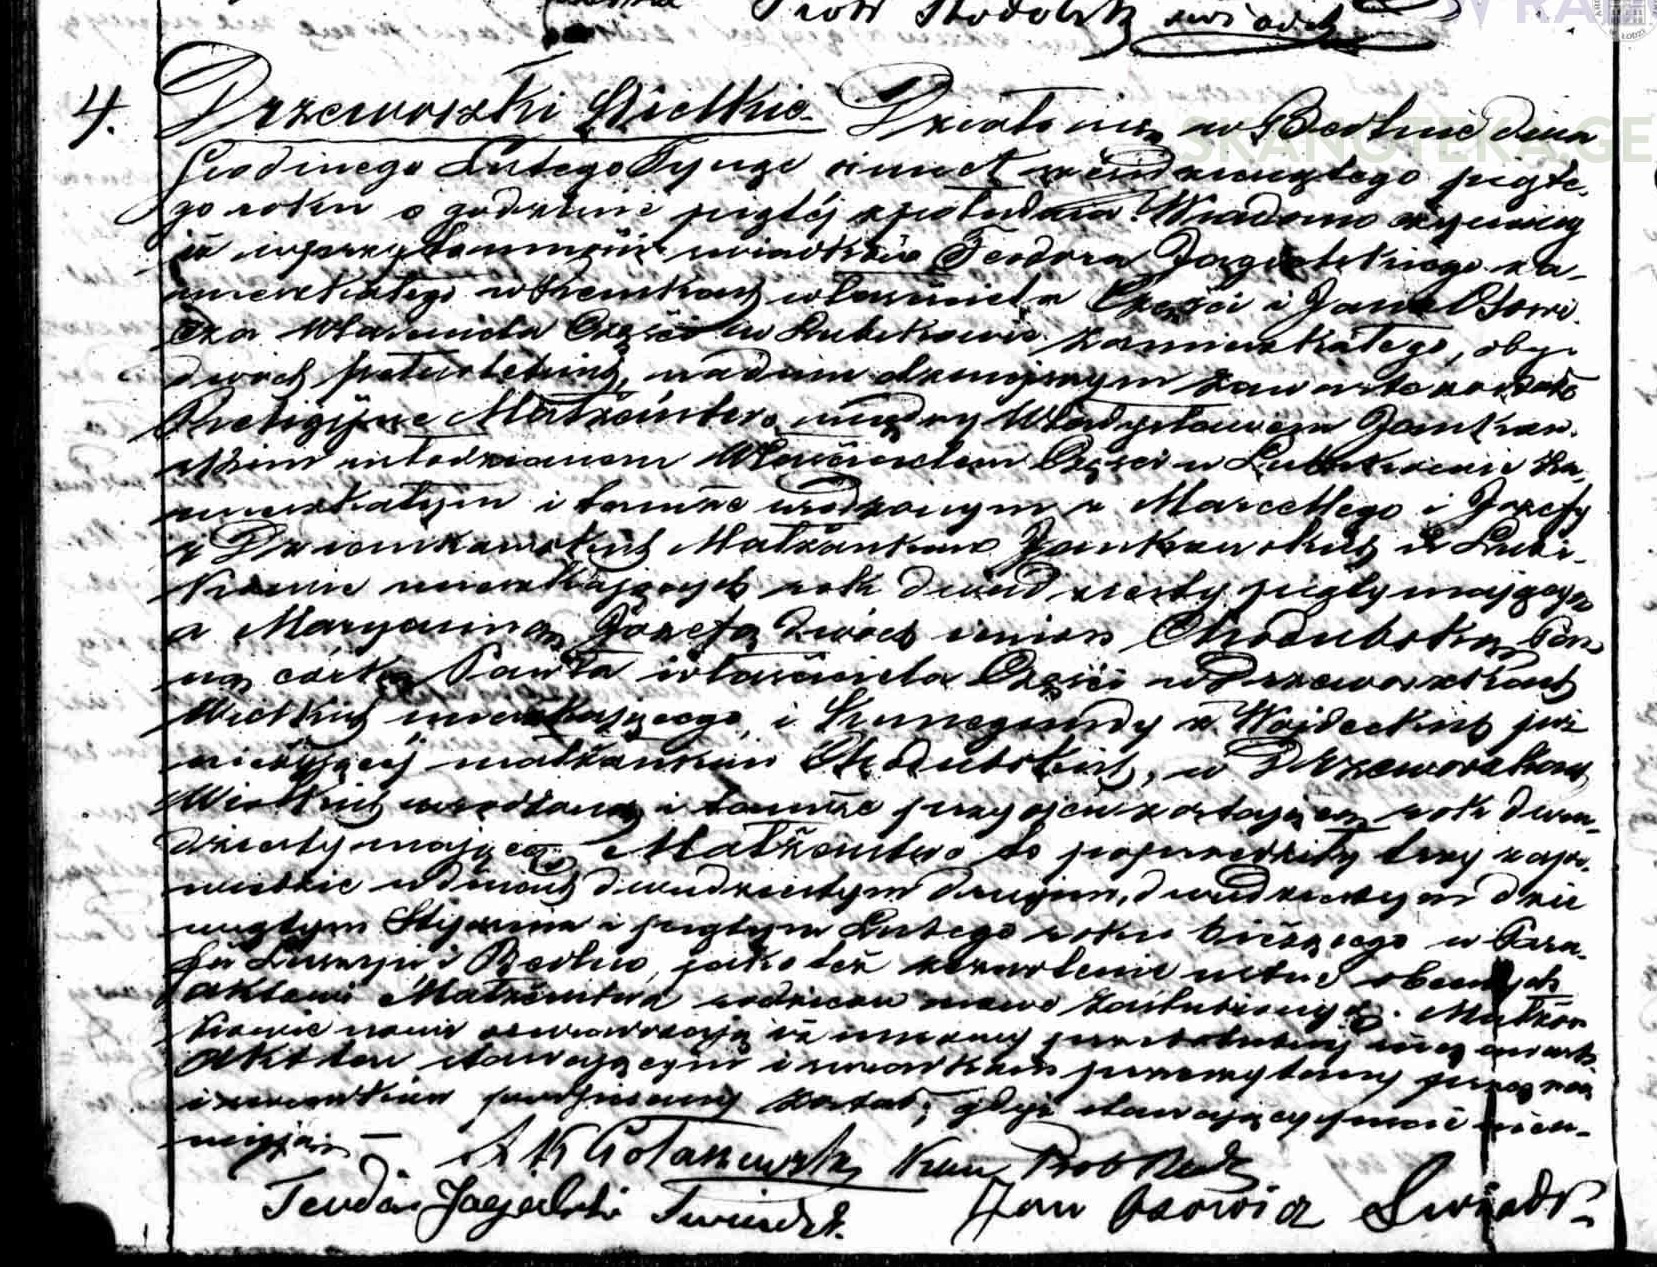 Piotr świadek
W RA
SKANOTEKA.GE
4. Drzewoszki Wielkie. Działo się w Bedlnie dnia
siódmego Lutego Tysiąc ośmset sześćdziesiątego piąte-
go roku o godzinie piątéj z południa. Wiadomo czynimy
iż w przytomności świadków Teodora Jagielskiego za-
mieszkałego w właściciela Części i Jana Osowi-
cza Właściciela Części w zamieszkałego, oby-
dwóch pełnoletnich, w dniu dzisiejszym zawarte zostało
Religijne Małżeństwo między Władysławem Jankow-
skim młodzianem Właścicielem Części w za-
mieszkałym i tamże urodzonym z Marcellego i Józefy
z Małżonków Jankowskich w
mieszkających rok dwudziesty piąty mającym
a Maryanną Józefą dwóch imion Chodubską Pan-
ną córką Pawła właściciela Części w Drzewoszkach
Wielkich mieszkającego, i Kunegundy z Wojdeckich już
nieżyjącéj małżonków Chodubskich, w Drzewoszkach
Wielkich urodzoną i tamże przy ojcu zostającą rok dwu-
dziesty mającą. Małżeństwo to poprzedziły trzy zapo-
wiedzie w dniach dwudziestym drugim, dwudziestym dzie-
wiątym Stycznia i piątym Lutego roku bieżącego w Para-
fii i Bedlno, jako też zezwolenie ustne obecnych
aktowi Małżeństwa rodziców nowo zaślubionych. Małżon-
kowie nowi oświadczają iż umowy przedślubnéj nie zawarli
Akt ten stawającym i świadkom przeczytany przez nas
i świadków podpisany został, gdyż stawający pisać nieu-
mieją. —
Kan Prob Bedl
Teodor Jagielski Świadek. Jan Osowicz Świadk